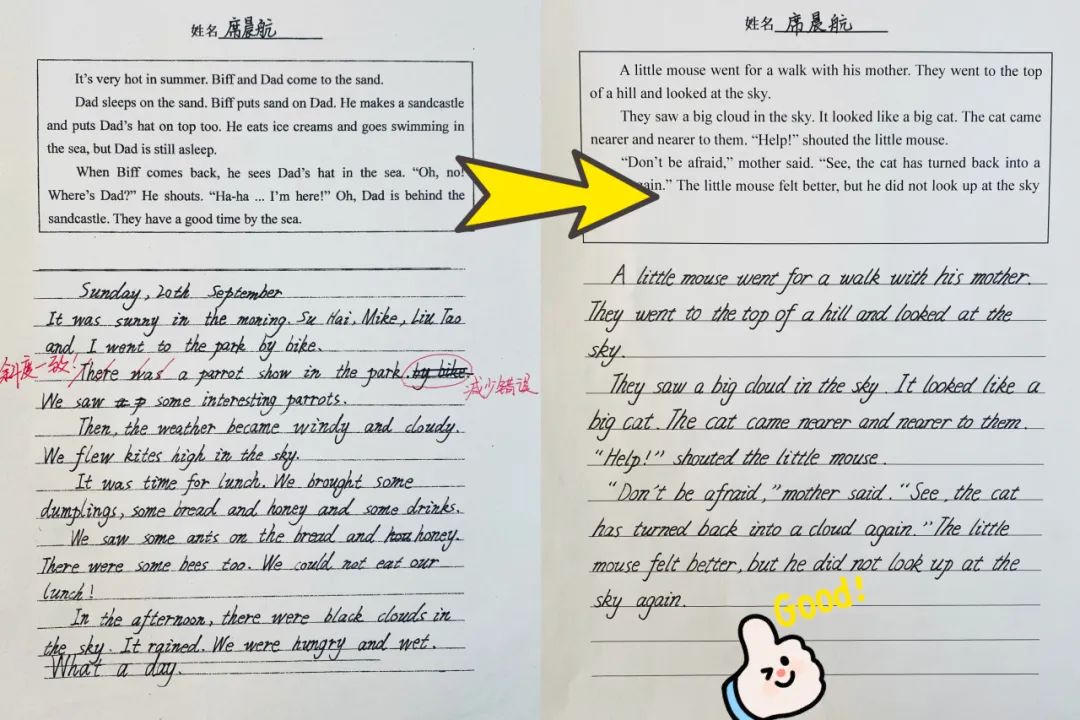 姓名 席晨航
It's very hot in summer. Biff and Dad come to the sand.
Dad sleeps on the sand. Biff puts sand on Dad. He makes a sandcastle
and puts Dad's hat on top too. He eats ice creams and goes swimming in
the sea, but Dad is still asleep.
When Biff comes back, he sees Dad's hat in the sea. “Oh, no!
Where's Dad?” He shouts. “Ha-ha ... I'm here!” Oh, Dad is behind the
sandcastle. They have a good time by the sea.
Sunday, 20th September
It was sunny in the moning. Su Hai, Mike, Liu Tao
and I went to the park by bike.
斜度一致!
There was a parrot show in the park. by bike.
减少错误
We saw a p some interesting parrots.
Then, the weather became windy and cloudy.
We flew kites high in the sky.
It was time for lunch. We brought some
dumplings, some bread and honey and some drinks.
We saw some ants on the bread and hou honey.
There were some bees too. We could not eat our
lunch!
In the afternoon, there were black clouds in
the sky. It rained. We were hungry and wet.
What a day.
姓名 席晨航
A little mouse went for a walk with his mother. They went to the top
of a hill and looked at the sky.
They saw a big cloud in the sky. It looked like a big cat. The cat came
nearer and nearer to them. “Help!” shouted the little mouse.
“Don't be afraid,” mother said. “See, the cat has turned back into a
The little mouse felt better, but he did not look up at the sky
A little mouse went for a walk with his mother.
They went to the top of a hill and looked at the
sky.
They saw a big cloud in the sky. It looked like a
big cat. The cat came nearer and nearer to them.
“Help!” shouted the little mouse.
“Don't be afraid,” mother said. “See, the cat
has turned back into a cloud again.” The little
mouse felt better, but he did not look up at the
sky again.
Good!